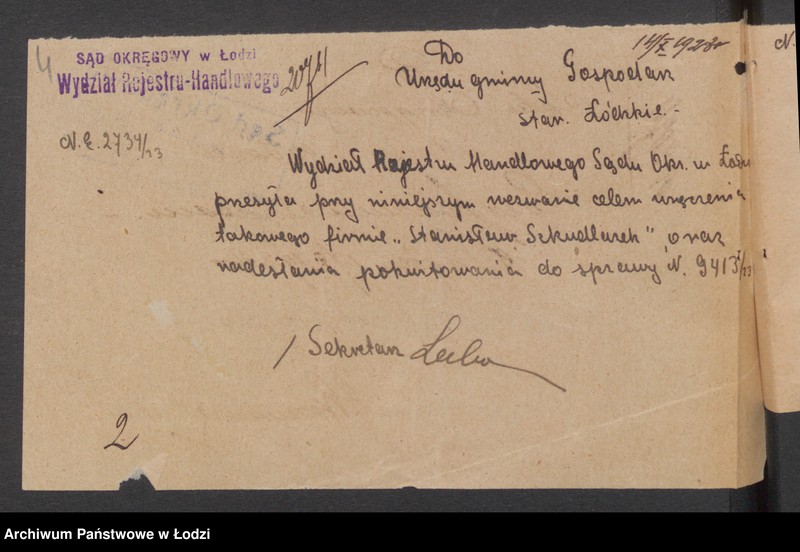 4
SĄD OKRĘGOWY w Łodzi
Wydział Rejestru-Handlowego
14/X 1923 r
N. E. 2734/23
Do
Urzędu gminy Gospodarz
stan. Łódzkie. -
Wydział Rejestru Handlowego Sądu Okr. w Łodzi
przesyła przy niniejszym wezwanie celem wręczenia
takowego firmie „Stanisław Szkudlarek" oraz
nadesłania pokwitowania do sprawy N. 9413/23
/ Sekretarz
2
N.
Archiwum Państwowe w Łodzi